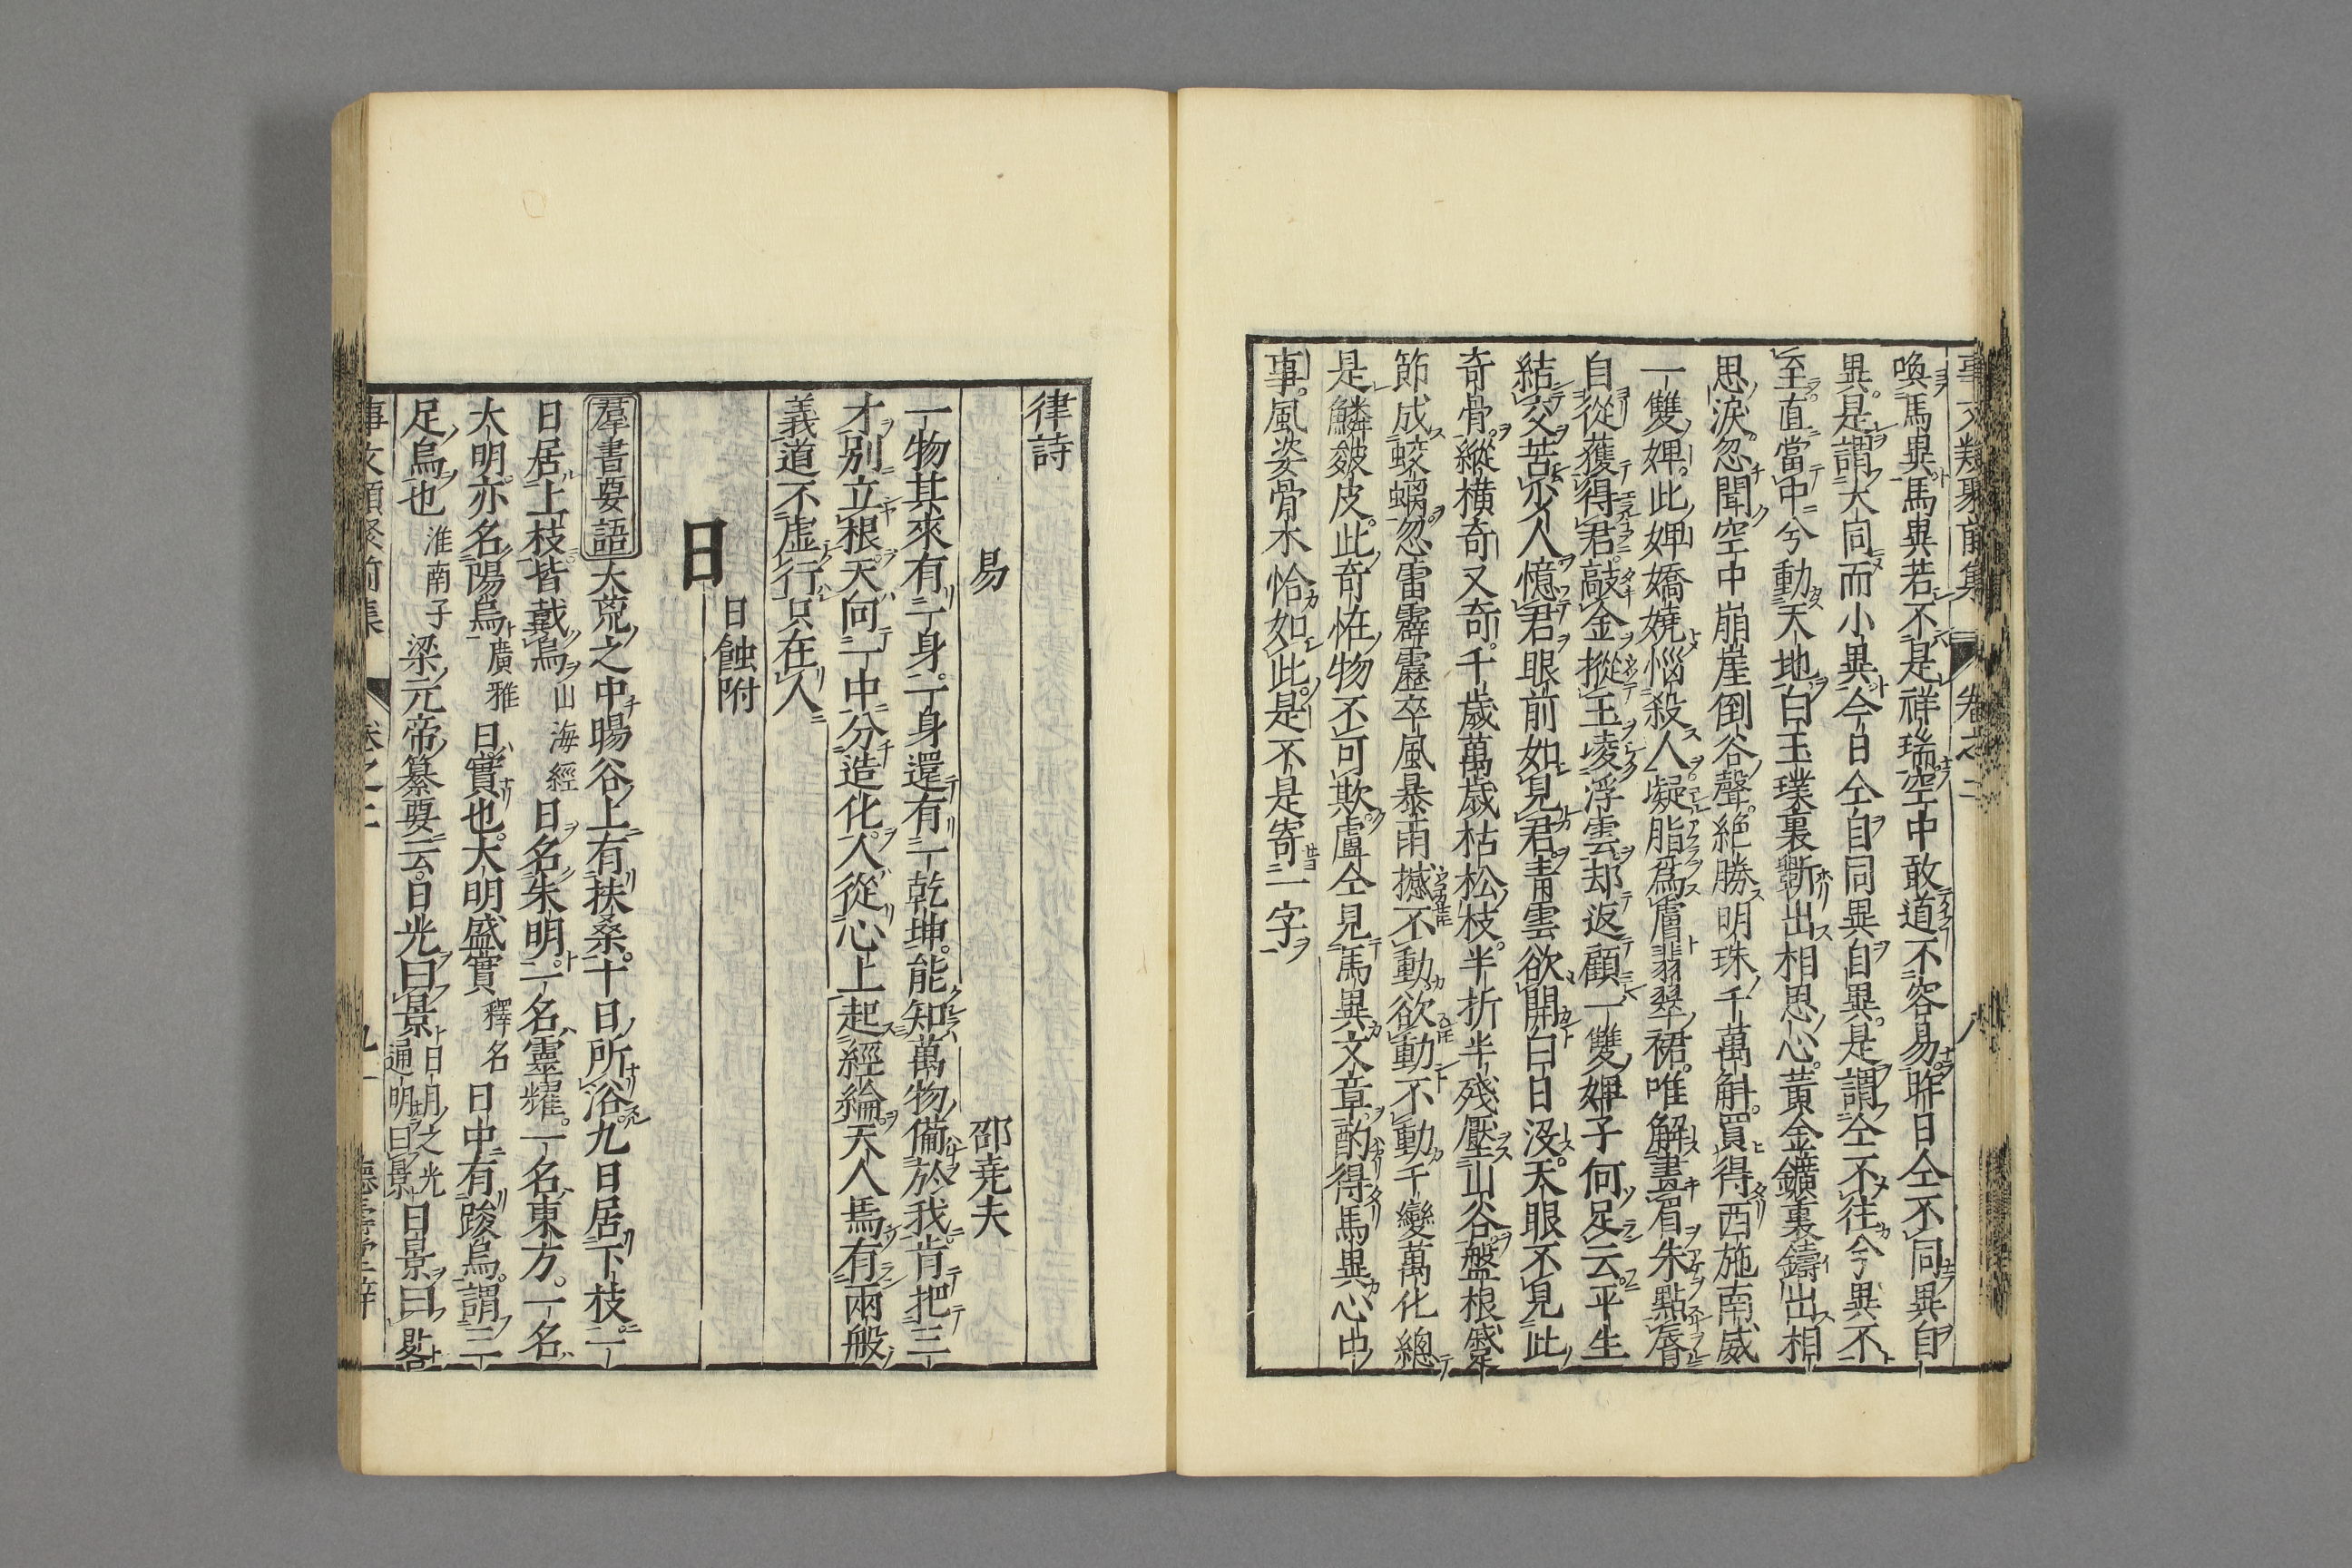 事文類聚前集 卷之二 八
喚馬異馬異若不是祥瑞空中敢道不容易昨日仝不同異自
異是謂大同而小異今日仝自同異自異是謂仝不往兮異不
至直當中兮動天地白玉璞裏斵出相思心黃金鑛裏鑄出相
思淚忽聞空中崩崖倒谷聲絕勝明珠千萬斛買得西施南威
一雙婢此婢嬌嬈惱殺人凝脂爲膚翡翠裙唯解畫眉朱點唇
自從獲得君敲金摐玉凌浮雲却返顧一雙婢子何足云平生
結交苦少人憶君眼前如見君青雲欲開白日沒天眼不見此
奇骨縱橫奇又奇千歲萬歲枯松枝半折半殘壓山谷盤根蹙
節成蛟螭忽雷霹靂卒風暴雨撼不動欲動不動千變萬化總
是鱗皴皮此奇恠物不可欺盧仝見馬異文章酌得馬異心中
事風姿骨木恰如此是不是寄一字
律詩
易 邵堯夫
一物其來有一身一身還有一乾坤能知萬物備於我肯把三
才別立根天向一中分造化人從心上起經綸天人焉有兩般
義道不虛行只在人
日 日蝕附
羣書要語 大荒之中暘谷上有扶桑十日所浴九日居下枝一
日居上枝皆戴烏 山海經 日名朱明一名靈耀一名東方一名
大明亦名陽烏 廣雅 日實也大明盛實 釋名 日中有踆烏謂三
足烏也 淮南子 梁元帝纂要云日光曰景 日月之光通明曰景 日景曰晷
事文類聚前集 卷之二 九